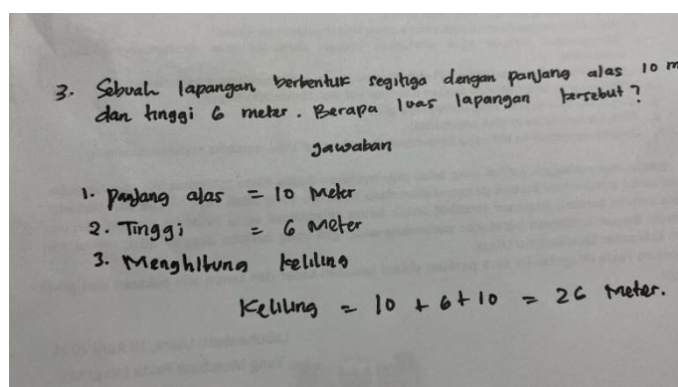 3. Sebuah lapangan berbentuk segitiga dengan panjang alas 10 m
dan tinggi 6 meter. Berapa luas lapangan tersebut?
Jawaban
1. Panjang alas = 10 Meter
2. Tinggi = 6 Meter
3. Menghitung keliling
Keliling = 10 + 6 + 10 = 26 Meter.